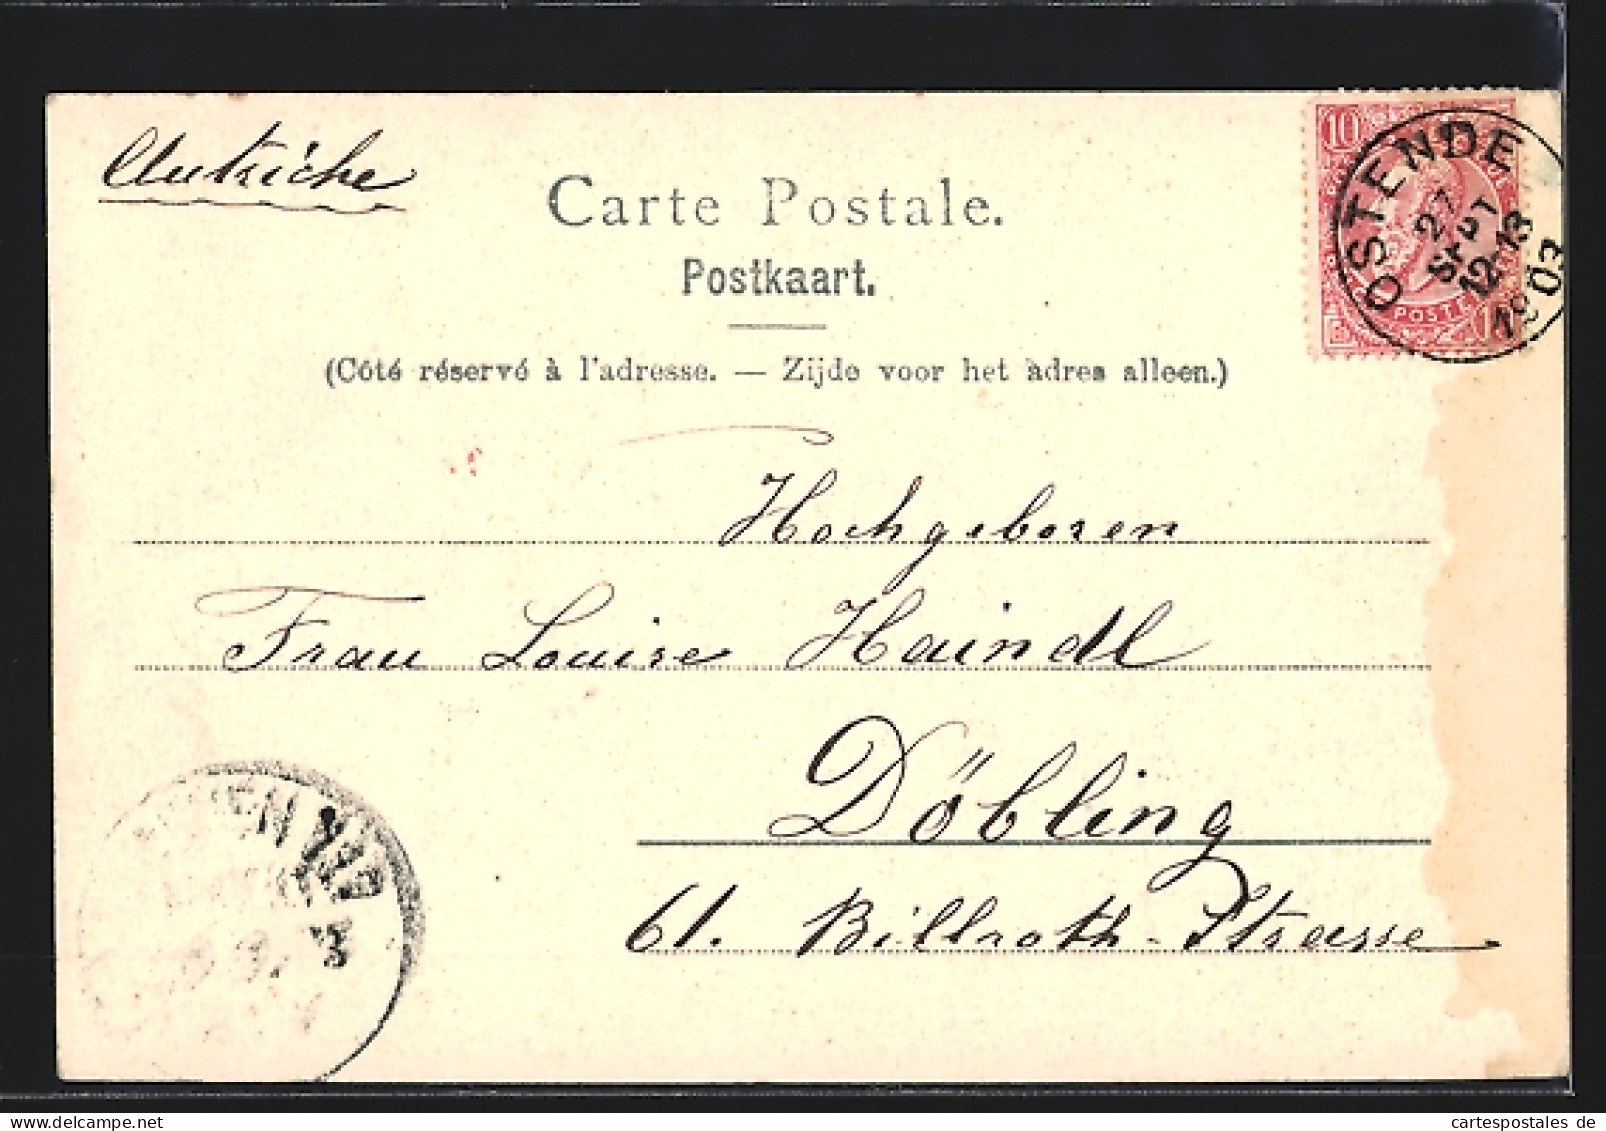 Autriche
Carte Postale.
Postkaart.
(Côté réservé à l'adresse. — Zijde voor het adres alleen.)
10
POSTES
OSTENDE
27
SEPT
12-13
1903
Hochgeboren
Frau Louise Haindl
Döbling
61. Billroth-Strasse
WIEN
cartespostales de